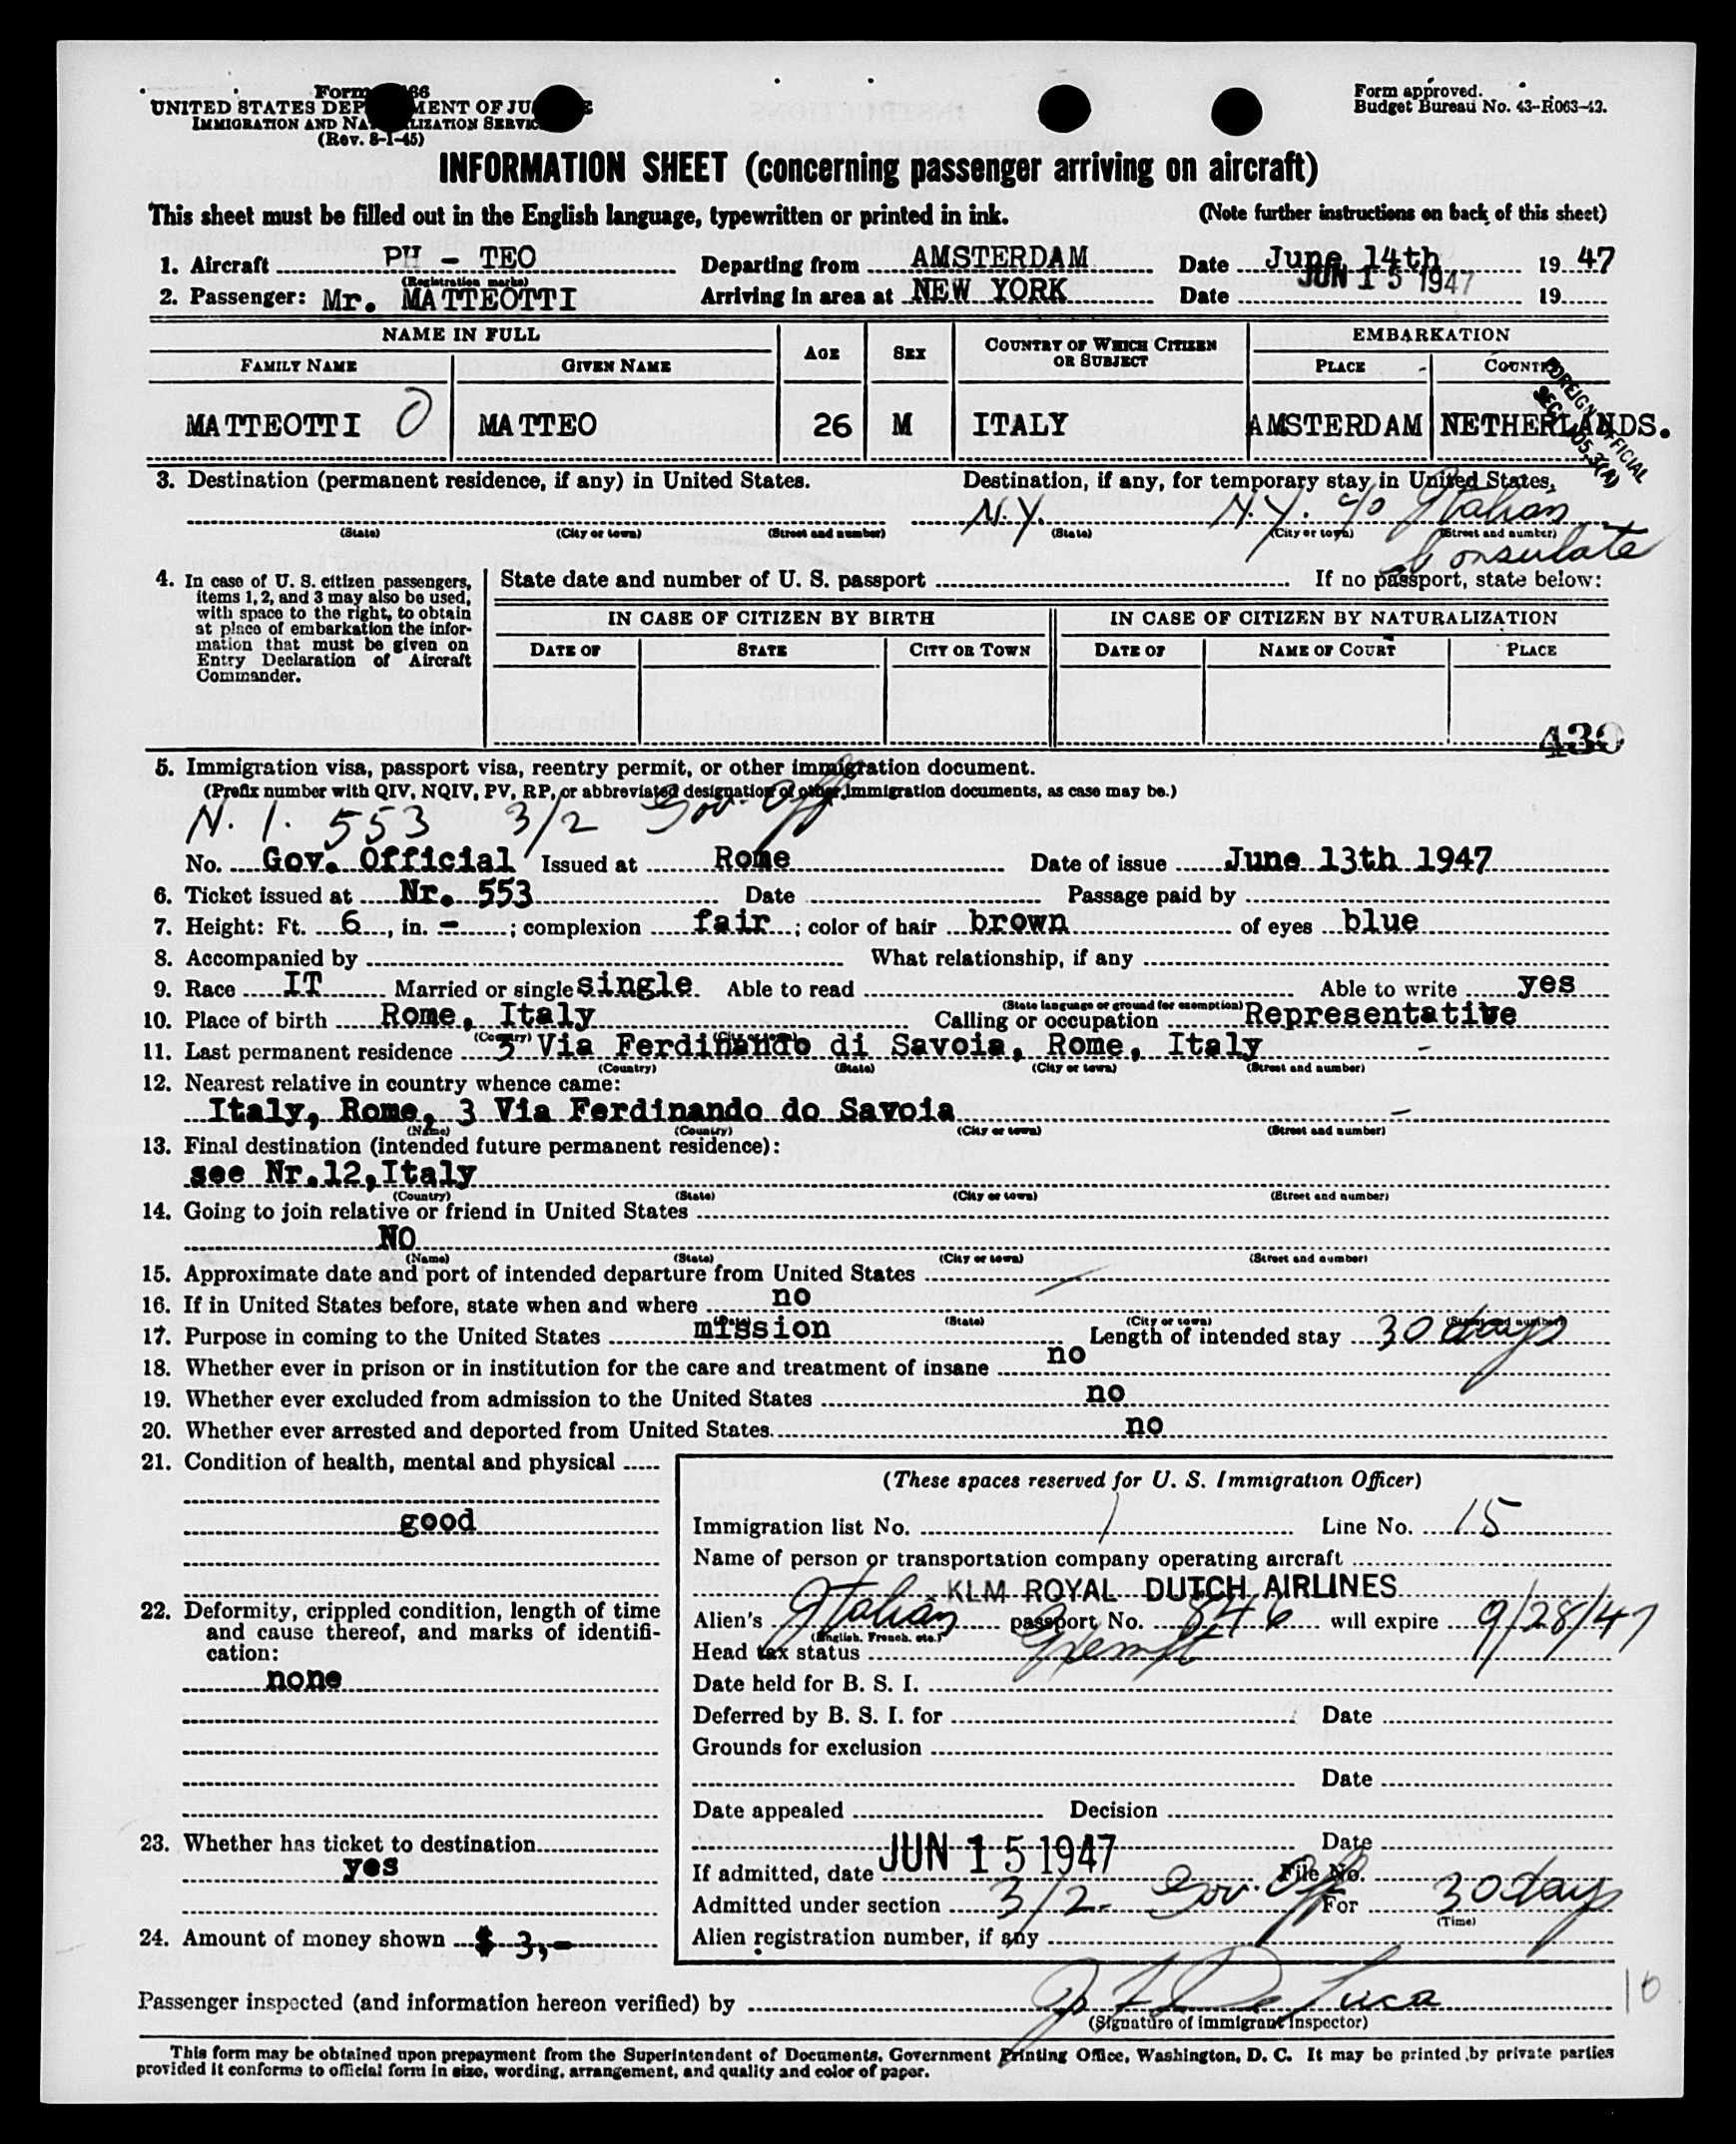 Form 66
UNITED STATES DEP MENT OF JU E
IMMIGRATION AND NA LIZATION SERVIC
(Rev. 8-1-45)
Form approved.
Budget Bureau No. 43-R063-42.
INFORMATION SHEET (concerning passenger arriving on aircraft)
This sheet must be filled out in the English language, typewritten or printed in ink. (Note further instructions on back of this sheet)
1. Aircraft PH - TEO Departing from AMSTERDAM Date June 14th 1947
(Registration marks)
2. Passenger: Mr. MATTEOTTI Arriving in area at NEW YORK Date JUN 15 1947 19
NAME IN FULL AGE SEX COUNTRY OF WHICH CITIZEN OR SUBJECT EMBARKATION
FAMILY NAME GIVEN NAME PLACE COUNTRY
MATTEOTTI 0 MATTEO 26 M ITALY AMSTERDAM NETHERLANDS.
FOREIGN OFFICIAL
SEC. 105.3(A)
3. Destination (permanent residence, if any) in United States. Destination, if any, for temporary stay in United States,
N.Y. N.Y. c/o Italian
(State) (City or town) (Street and number) (State) (City or town) (Street and number)
Consulate
4. In case of U. S. citizen passengers, items 1, 2, and 3 may also be used, with space to the right, to obtain at place of embarkation the information that must be given on Entry Declaration of Aircraft Commander.
State date and number of U. S. passport If no passport, state below:
IN CASE OF CITIZEN BY BIRTH IN CASE OF CITIZEN BY NATURALIZATION
DATE OF STATE CITY OR TOWN DATE OF NAME OF COURT PLACE
430
5. Immigration visa, passport visa, reentry permit, or other immigration document.
(Prefix number with QIV, NQIV, PV, RP, or abbreviated designation of other immigration documents, as case may be.)
N. I. 553 3/2 Gov. Off
No. Gov. Official Issued at Rome Date of issue June 13th 1947
6. Ticket issued at Nr. 553 Date Passage paid by
7. Height: Ft. 6, in. -; complexion fair; color of hair brown of eyes blue
8. Accompanied by What relationship, if any
9. Race IT Married or single single Able to read Able to write yes
(State language or ground for exemption)
10. Place of birth Rome, Italy Calling or occupation Representative
(Country) (City or town)
11. Last permanent residence 3 Via Ferdinando di Savoia, Rome, Italy -
(Country) (State) (City or town) (Street and number)
12. Nearest relative in country whence came:
Italy, Rome, 3 Via Ferdinando do Savoia -
(Name) (Country) (City or town) (Street and number)
13. Final destination (intended future permanent residence):
see Nr.12,Italy
(Country) (State) (City or town) (Street and number)
14. Going to join relative or friend in United States
NO
(Name) (State) (City or town) (Street and number)
15. Approximate date and port of intended departure from United States
16. If in United States before, state when and where no
(State) (City or town) (Street and number)
17. Purpose in coming to the United States mission Length of intended stay 30 days
18. Whether ever in prison or in institution for the care and treatment of insane no
19. Whether ever excluded from admission to the United States no
20. Whether ever arrested and deported from United States. no
21. Condition of health, mental and physical
good
22. Deformity, crippled condition, length of time and cause thereof, and marks of identification:
none
23. Whether has ticket to destination
yes
24. Amount of money shown $ 3,-
(These spaces reserved for U. S. Immigration Officer)
Immigration list No. 1 Line No. 15
Name of person or transportation company operating aircraft
KLM ROYAL DUTCH AIRLINES
Alien's Italian passport No. 846 will expire 9/28/47
(English, French, etc.)
Head tax status Exempt
Date held for B. S. I.
Deferred by B. S. I. for Date
Grounds for exclusion
Date
Date appealed Decision
Date
If admitted, date JUN 15 1947 File No.
Admitted under section 3/2- Gov. Off For 30 days
(Time)
Alien registration number, if any
Passenger inspected (and information hereon verified) by De Luca
(Signature of immigrant inspector)
This form may be obtained upon prepayment from the Superintendent of Documents, Government Printing Office, Washington, D. C. It may be printed by private parties
provided it conforms to official form in size, wording, arrangement, and quality and color of paper.